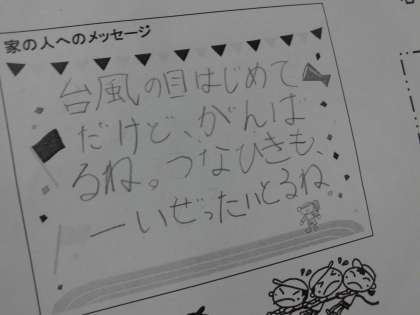 家の人へのメッセージ
台風の目はじめて
だけど、がんば
るね。つなひきも、
一いぜったいとるね。